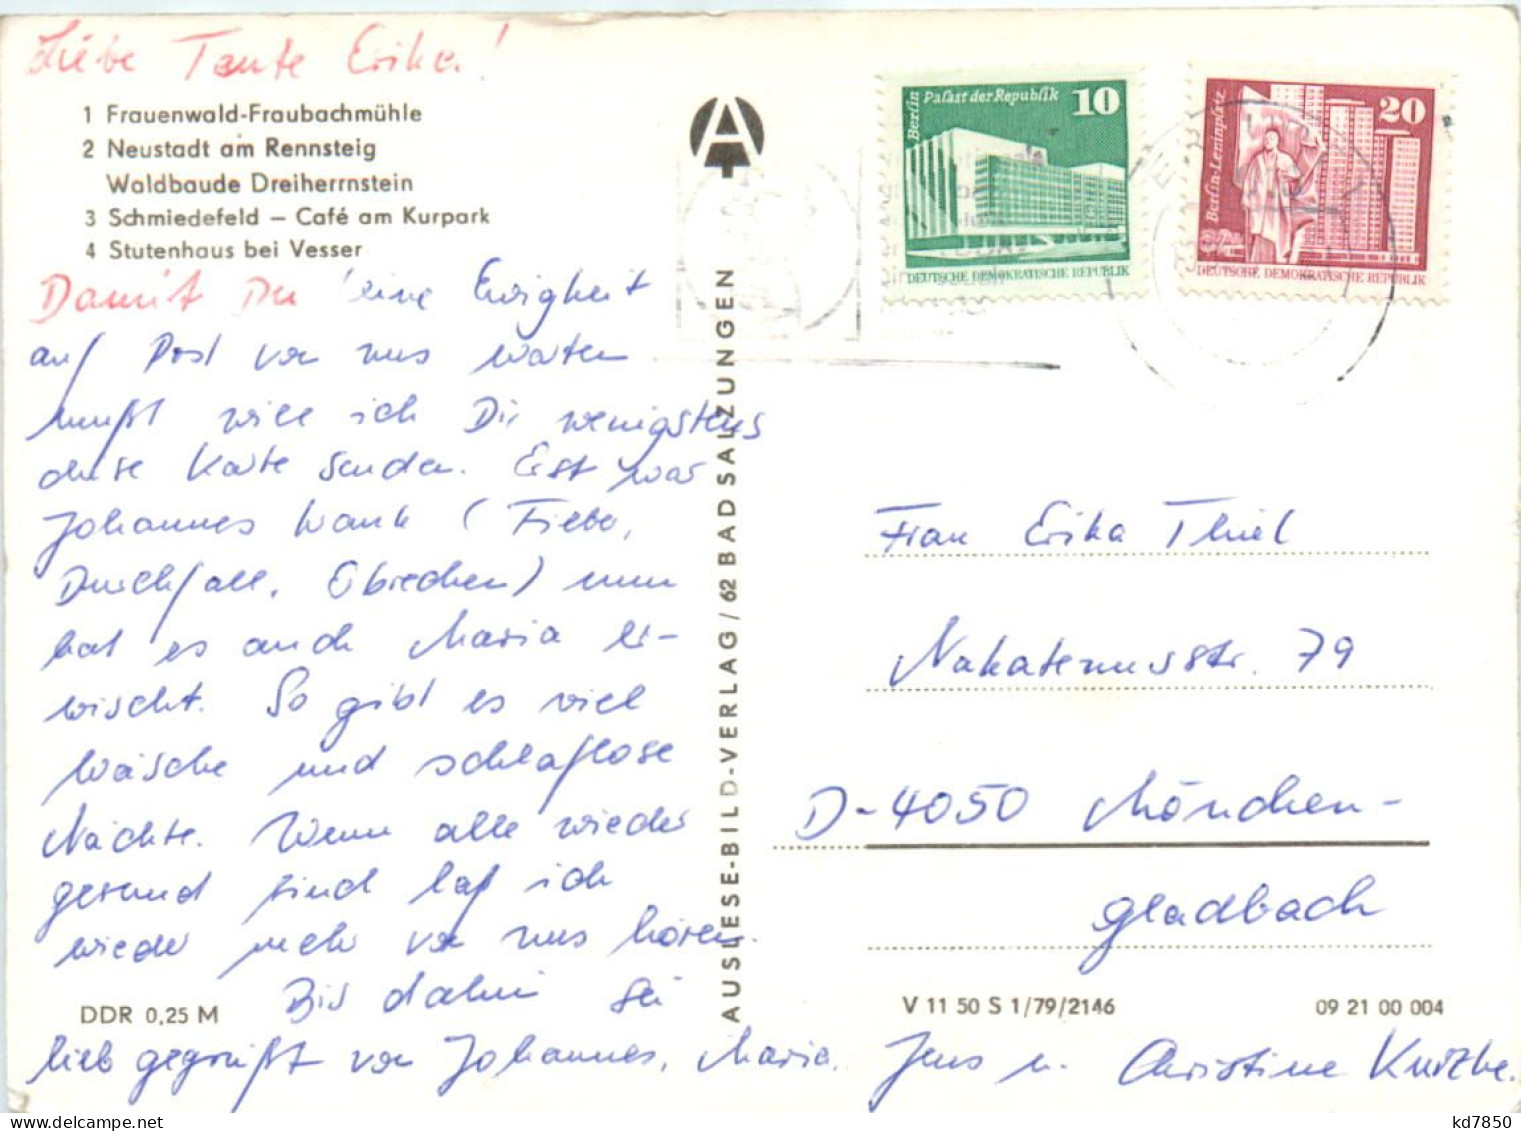 Liebe Tante Erika!
1 Frauenwald-Fraubachmühle
2 Neustadt am Rennsteig
Waldbaude Dreiherrnstein
3 Schmiedefeld – Café am Kurpark
4 Stutenhaus bei Vesser
Damit Du keine Ewigkeit
auf Post von uns warten
mußt will ich Dir wenigstens
diese Karte senden. Erst war
Johannes krank (Fieber,
Durchfall, Erbrechen) nun
hat es auch Maria er-
wischt. So gibt es viel
Wäsche und schlaflose
Nächte. Wenn alle wieder
gesund sind laß ich
wieder mehr von uns hören.
Bis dahin sei
lieb gegrüßt von Johannes, Maria, Jens u. Christine
DDR 0,25 M
AUSLESE-BILD-VERLAG / 62 BAD SALZUNGEN
A
Berlin Palast der Republik 10
DEUTSCHE DEMOKRATISCHE REPUBLIK
Berlin-Leninplatz 20
DEUTSCHE DEMOKRATISCHE REPUBLIK
Frau Erika Thiel
79
D-4050 Mönchen-
gladbach
V 11 50 S 1/79/2146
09 21 00 004
kd7850